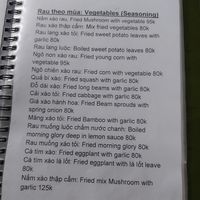 Rau theo mùa: Vegetables (Seasoning)
Nấm xào rau: Fried Mushroom with vegetable 95k
Rau xào thập cẩm: Mix fried vegetables 80k
Rau lang xào tỏi: Fried sweet potato leaves with
garlic 80k
Rau lang luộc: Boiled sweet potato leaves 80k
Ngô non xào rau: Fried young corn with
vegetable 95k
Ngô chiên xào rau: Fried corn with vegetable 80k
Quả bí xào: Fried squash with garlic 80k
Đỗ dài xào: Fried long beams with garlic 80k
Cải xào tỏi: Fried cabbage with garlic 80k
Giá xào hành hoa: Fried Beam sprouds with
spring onion 80k
Măng xào tỏi: Fried Bamboo with garlic 80k
Rau muống luộc chấm nước chanh: Boiled
morning glory deep in lemon sauce 80k
Rau muống xào tỏi: Fried morning glory 80k
Cà tím xào tỏi: Fried eggplant with garlic 80k
Cà tím xào lá lốt: Fried eggplant with lá lốt leave
80k
Nấm xào thập cẩm: Fried mix Mushroom with
garlic 125k